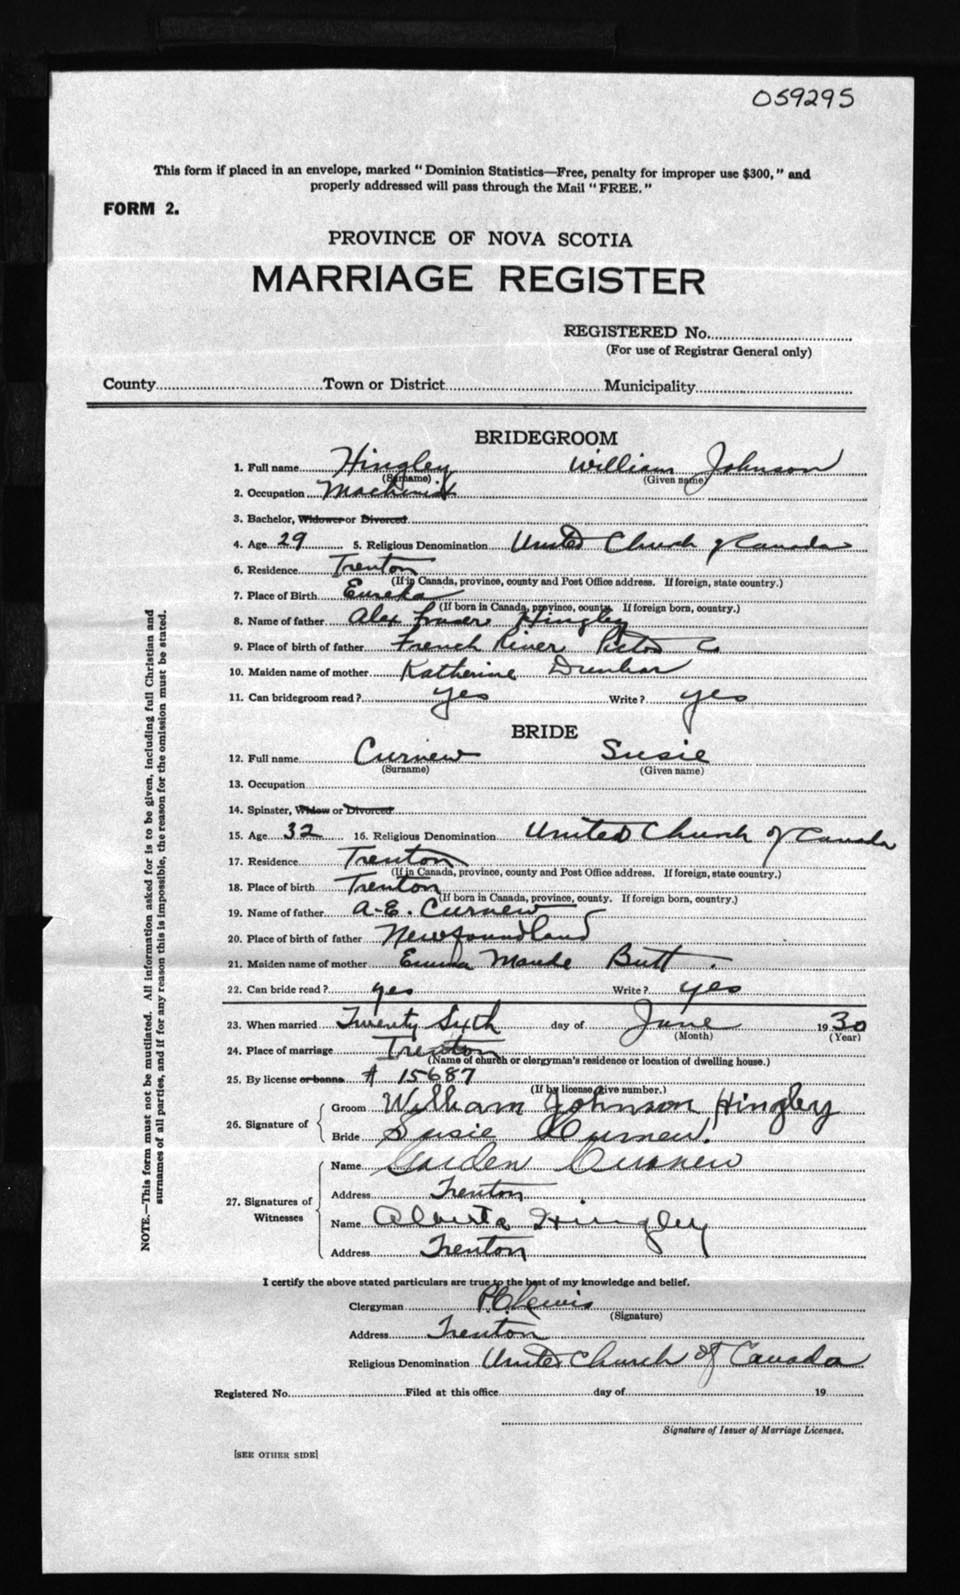 059295
This form if placed in an envelope, marked "Dominion Statistics—Free, penalty for improper use $300," and
properly addressed will pass through the Mail "FREE."
FORM 2.
PROVINCE OF NOVA SCOTIA
MARRIAGE REGISTER
REGISTERED No.
(For use of Registrar General only)
County Town or District Municipality
BRIDEGROOM
1. Full name Hingley William Johnson
(Surname) (Given name)
2. Occupation Machinist
3. Bachelor, Widower or Divorced
4. Age 29 5. Religious Denomination United Church of Canada
6. Residence Trenton
(If in Canada, province, county and Post Office address. If foreign, state country.)
7. Place of Birth Eureka
(If born in Canada, province, county. If foreign born, country.)
8. Name of father Alex Fraser Hingley
9. Place of birth of father French River Pictou Co
10. Maiden name of mother Katherine Dunbar
11. Can bridegroom read? yes Write? yes
BRIDE
12. Full name Curnew Susie
(Surname) (Given name)
13. Occupation
14. Spinster, Widow or Divorced
15. Age 32 16. Religious Denomination United Church of Canada
17. Residence Trenton
(If in Canada, province, county and Post Office address. If foreign, state country.)
18. Place of birth Trenton
(If born in Canada, province, county. If foreign born, country.)
19. Name of father A-E. Curnew
20. Place of birth of father Newfoundland
21. Maiden name of mother Emma Maude Butt.
22. Can bride read? yes Write? yes
23. When married Twenty Sixth day of June 1930
(Month) (Year)
24. Place of marriage Trenton
(Name of church or clergyman's residence or location of dwelling house.)
25. By license or banns # 15687
(If by license, give number.)
26. Signature of Groom William Johnson Hingley
Bride Susie Curnew.
27. Signatures of Witnesses
Name Gorden Curnew
Address Trenton
Name Alberta Hingley
Address Trenton
I certify the above stated particulars are true to the best of my knowledge and belief.
Clergyman P.C. Lewis
(Signature)
Address Trenton
Religious Denomination United Church of Canada
Registered No. Filed at this office day of 19
Signature of Issuer of Marriage Licenses.
[SEE OTHER SIDE]
NOTE.—This form must not be mutilated. All information asked for is to be given, including full Christian and
surnames of all parties, and if for any reason this is impossible, the reason for the omission must be stated.